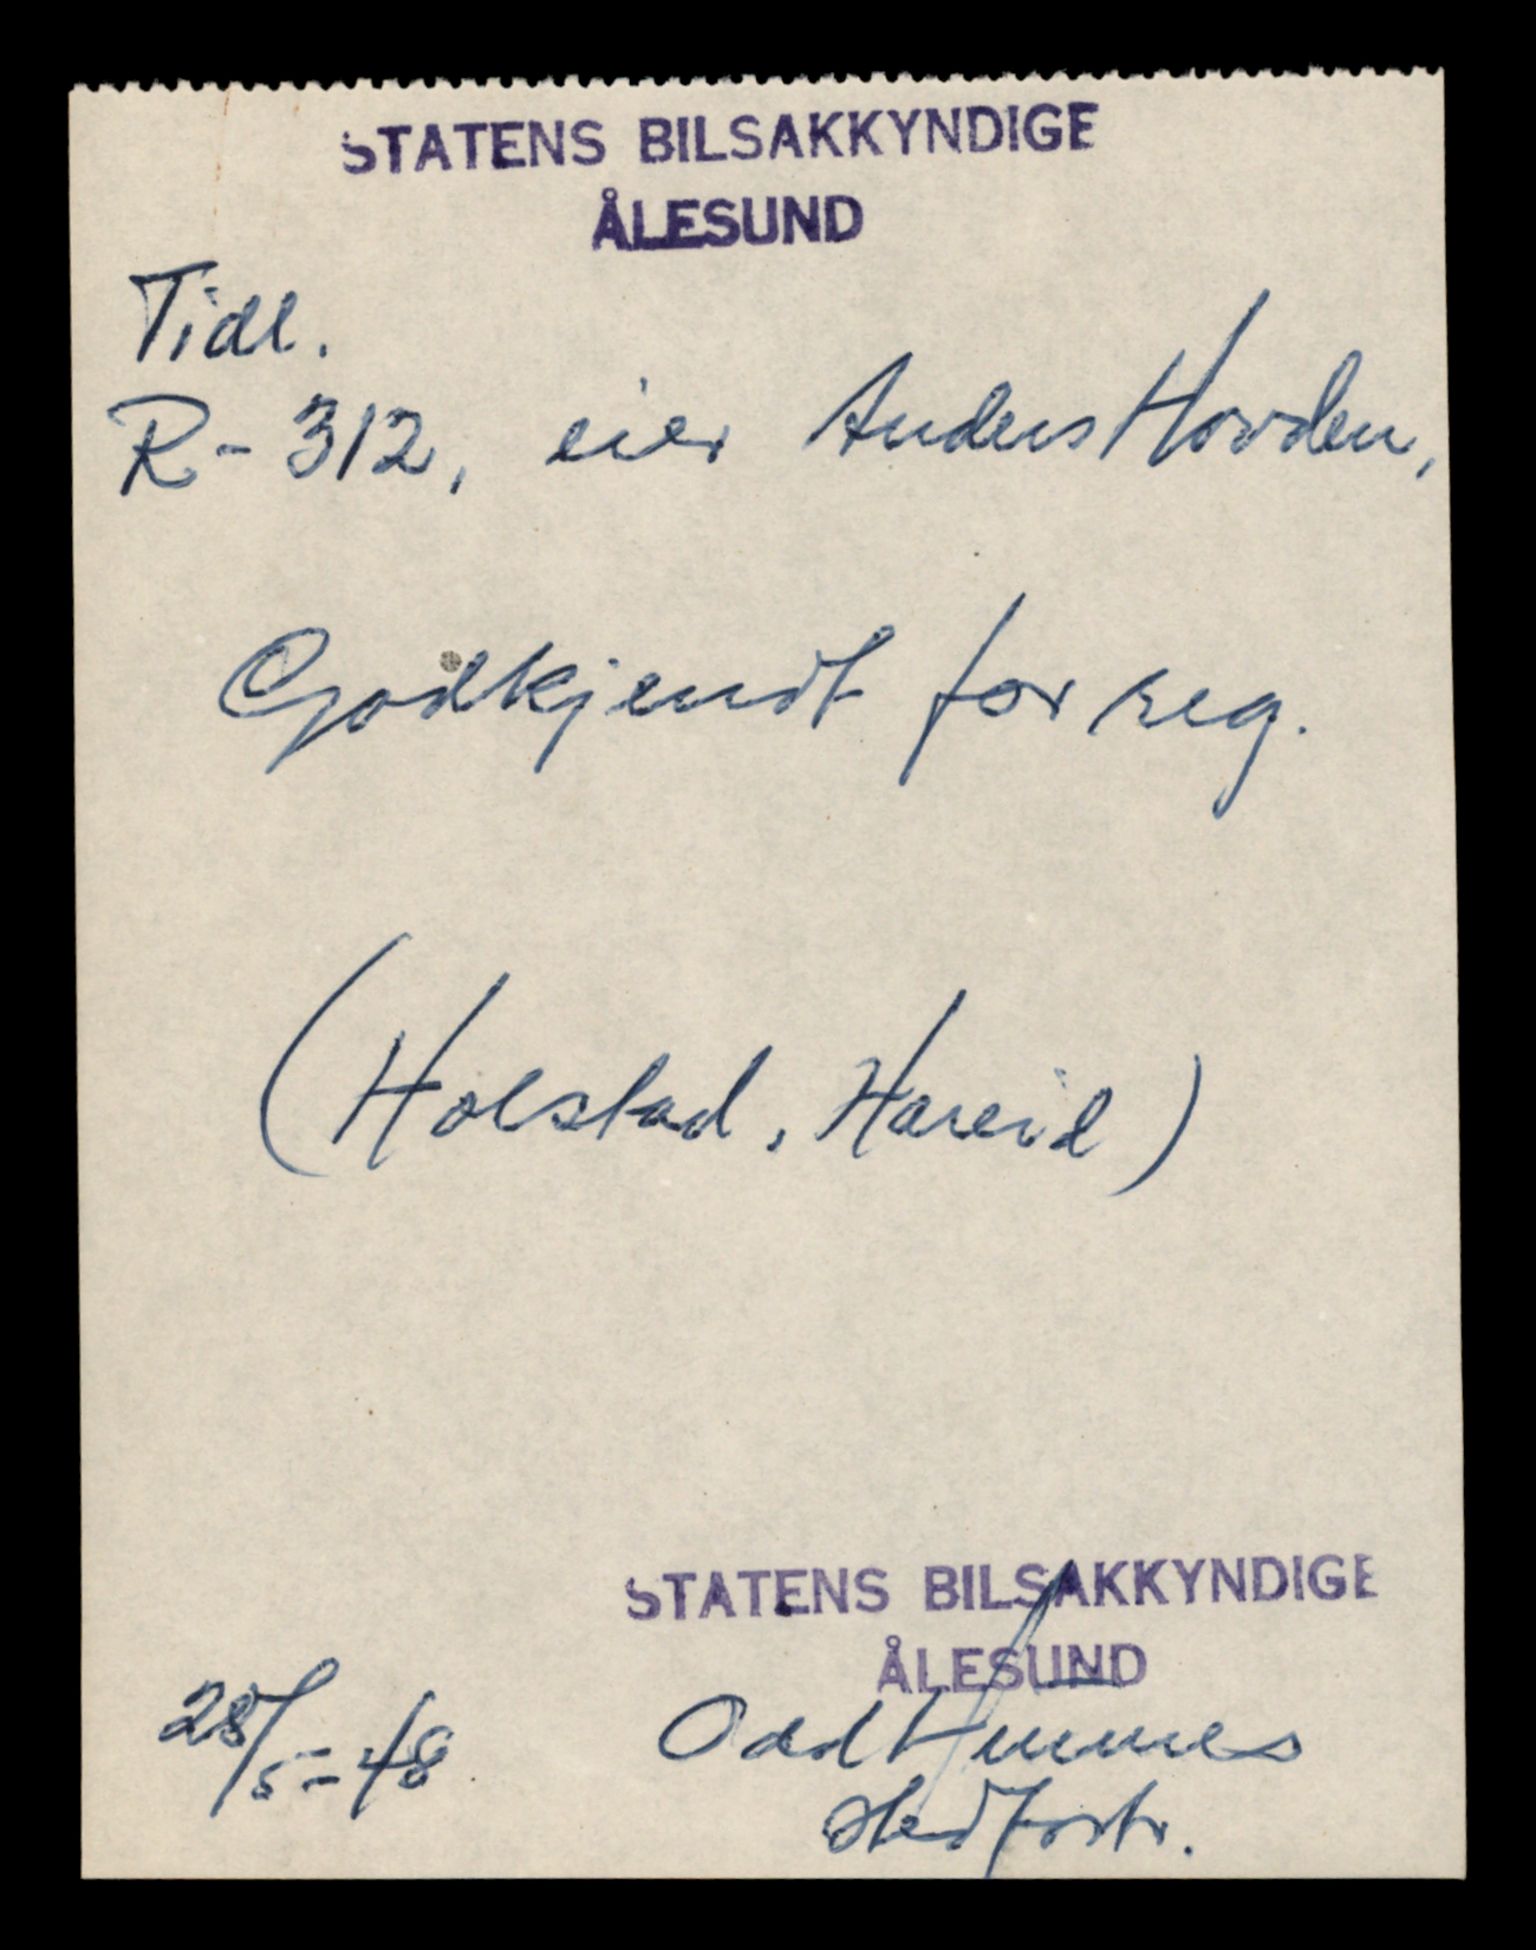 STATENS BILSAKKYNDIGE
ÅLESUND
Tidl.
R-312, eier Anders Hovden,
Godkjendt for reg.
(Holstad, Hareid)
STATENS BILSAKKYNDIGE
ÅLESUND
28/5-48
Odd
stedfortr.